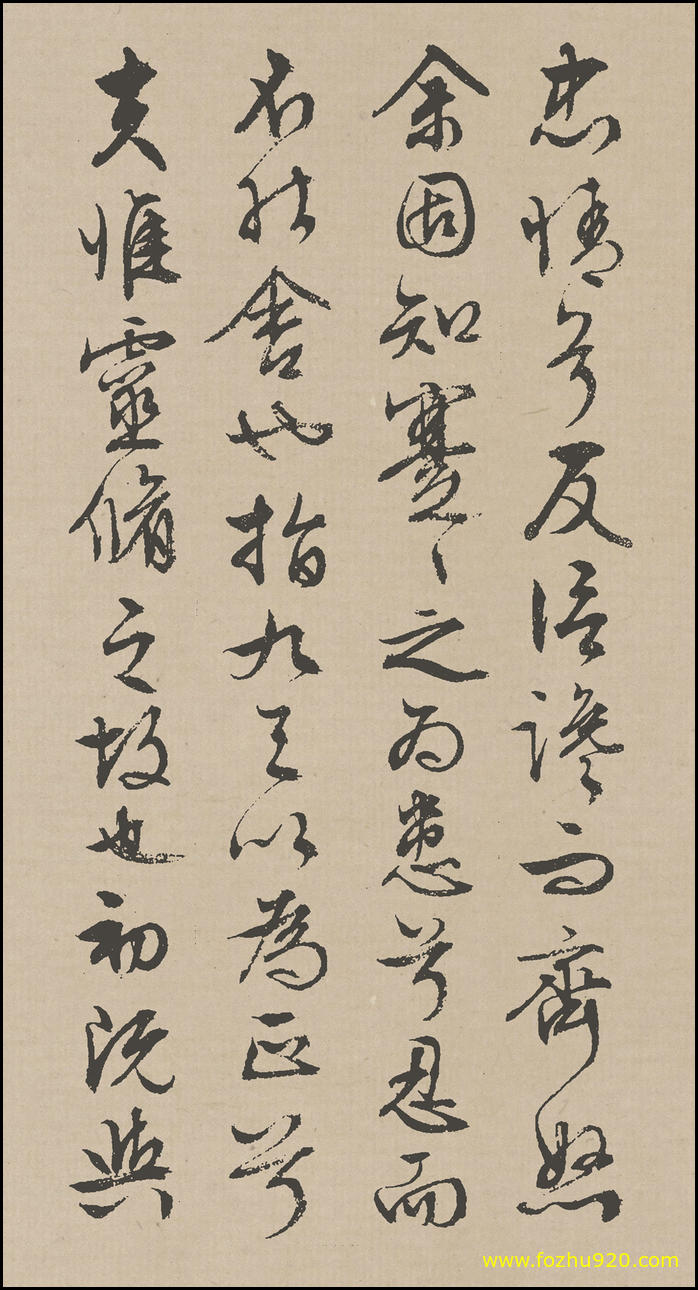 忠情兮反信讒而齊怒
余固知謇〻之為患兮忍而
不能舍也指九天以為正兮
夫惟靈脩之故也初既與
www.fozhu920.com